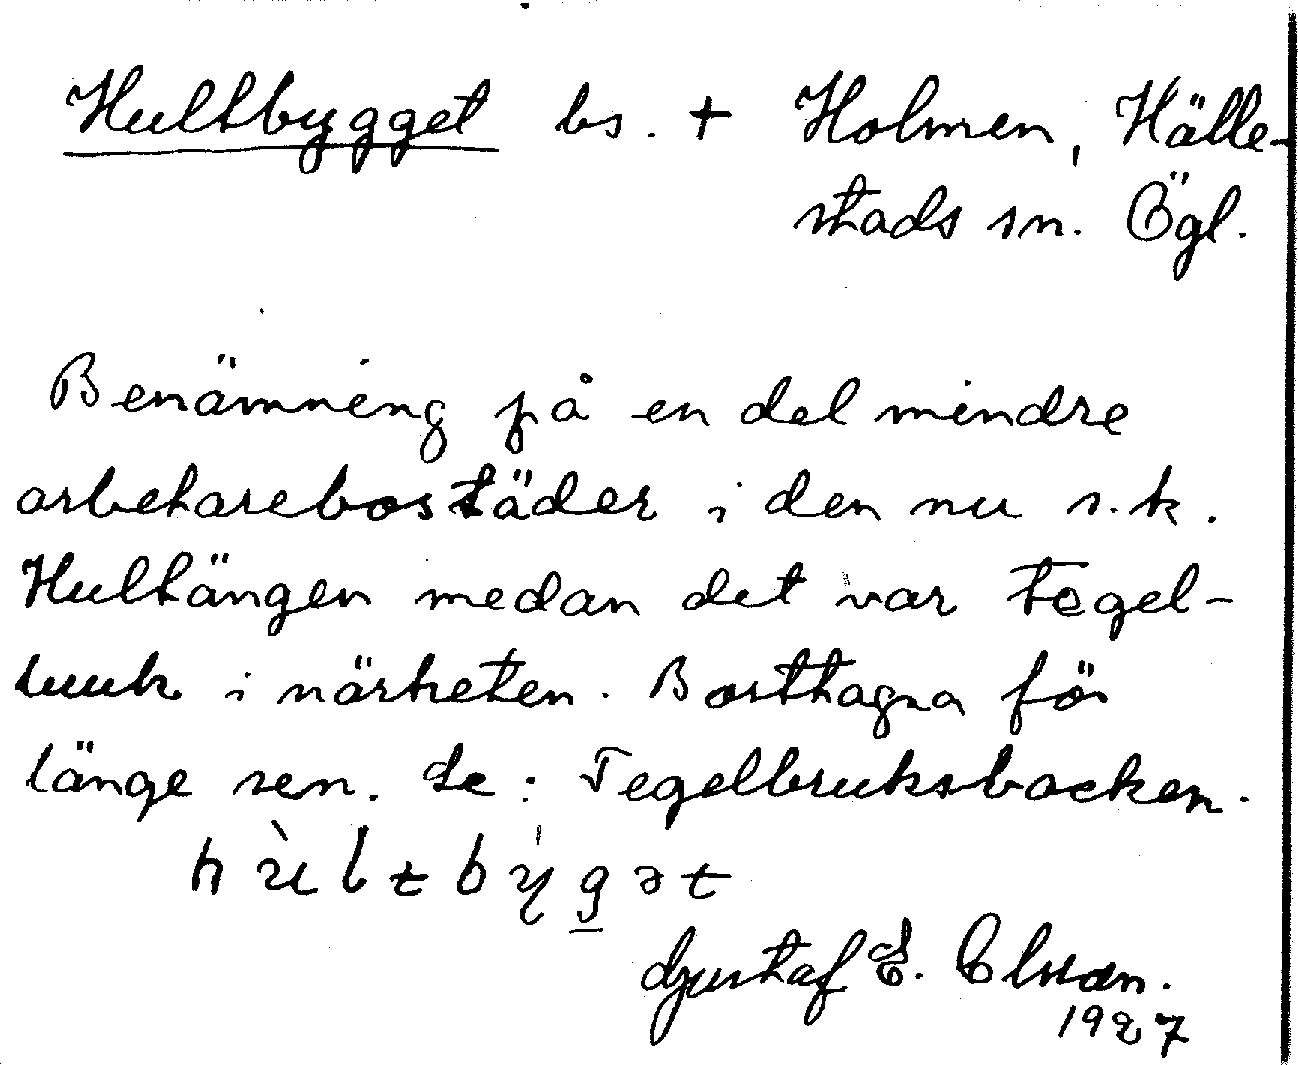 Hultbygget bs. + Holmen, Hälle-
stads sn. Ögl.
Benämning på en del mindre
arbetarebostäder i den nu s.k.
Hultängen medan det var Tegel-
bruk i närheten. Borttagna för
länge sen. Se: Tegelbruksbacken.
hùltbýgət
Gustaf E. Olsson.
1927